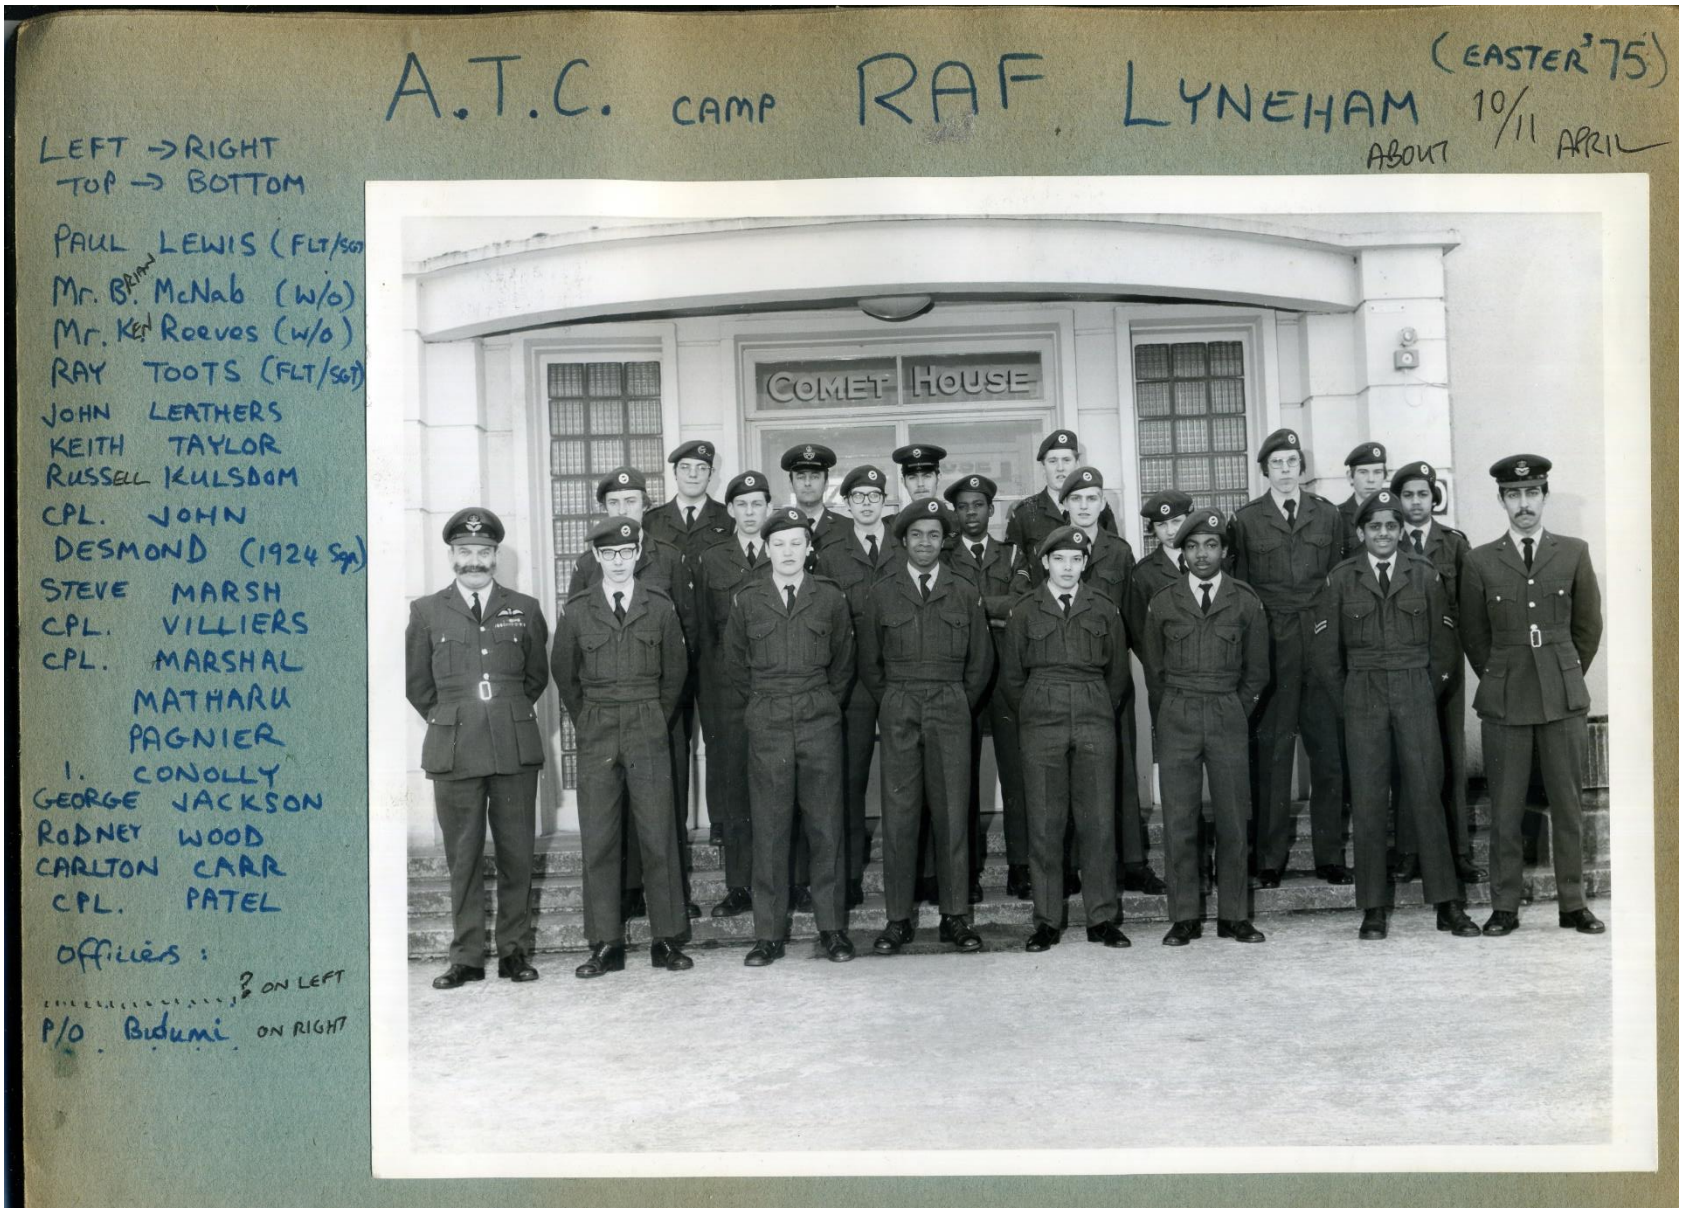 A.T.C. CAMP RAF LYNEHAM (EASTER '75)
ABOUT 10/11 APRIL
LEFT → RIGHT
TOP → BOTTOM
PAUL LEWIS (FLT/SGT
Mr. BRIAN McNab (W/O)
Mr. KEN Reeves (W/O)
RAY TOOTS (FLT/SGT)
JOHN LEATHERS
KEITH TAYLOR
RUSSELL KULSDOM
CPL. JOHN
DESMOND (1924 Sqn)
STEVE MARSH
CPL. VILLIERS
CPL. MARSHAL
MATHARU
PAGNIER
I. CONOLLY
GEORGE JACKSON
RODNEY WOOD
CARLTON CARR
CPL. PATEL
Officers :
...................? ON LEFT
P/O Budumi ON RIGHT
COMET HOUSE